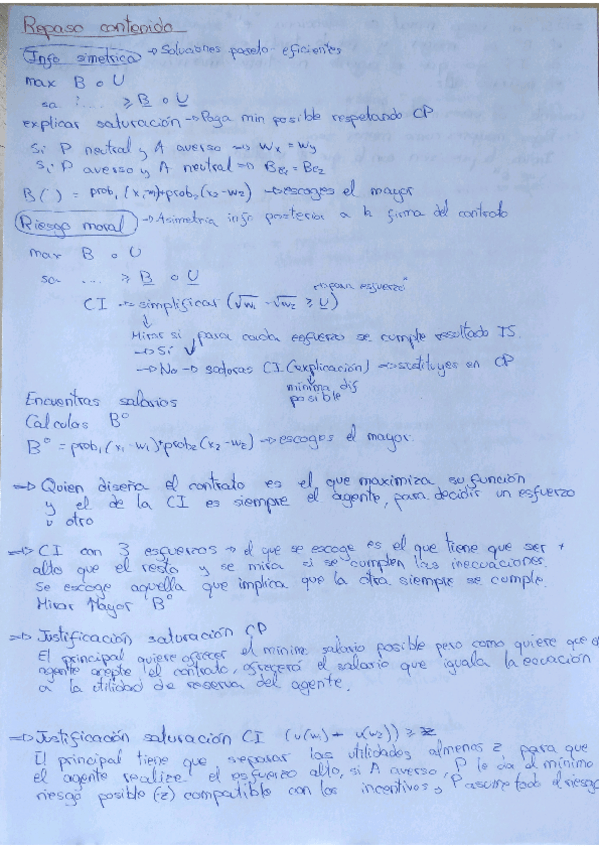 Repaso contenido
Info simetrica → Soluciones pareto-eficientes
max B o U
sa ..... ≥ B o U
explicar saturación → Paga min posible respetando CP
Si P neutral y A averso → Wx = Wy
Si P averso y A neutral → =
B( ) = prob₁ (x₁ )+prob₂(x₂-w₂) → escoges el mayor
Riesgo moral → Asimetria info posterior a la firma del contrato
max B o U
sa .... ≥ B o U
CI → simplificar (√w₁ - √w₂ ≥ U) → para esfuerzo
↓
Mirar si para cada esfuerzo se cumple resultado IS.
→ Si ✓
→ No → saturas CI (explicación) → sustituyes en CP
minima dif
posible
Encuentras salarios
Calculas B°
B° = prob₁(x₁-w₁)+prob₂(x₂-w₂) → escoges el mayor.
⇒ Quien diseña el contrato es el que maximiza su función
y el de la CI es siempre el agente, para decidir un esfuerzo
u otro
⇒ CI con 3 esfuerzos → el que se escoge es el que tiene que ser +
alto que el resto y se mira si se cumplen las inecuaciones.
Se escoge aquella que implica que la otra siempre se cumple.
Mirar Mayor B°
⇒ Justificación saturación CP
El principal quiere ofrecer el minimo salario posible pero como quiere que el
agente acepte el contrato, ofrecerá el salario que iguala la ecuación
a la utilidad de reserva del agente.
⇒ Justificación saturación CI (u(w₁) - u(w₂)) ≥ z
El principal tiene que separar las utilidades almenos z para que
el agente realize el esfuerzo alto, si A averso, P le da el mínimo
riesgo posible (z) compatible con los incentivos, P asume todo el riesgo